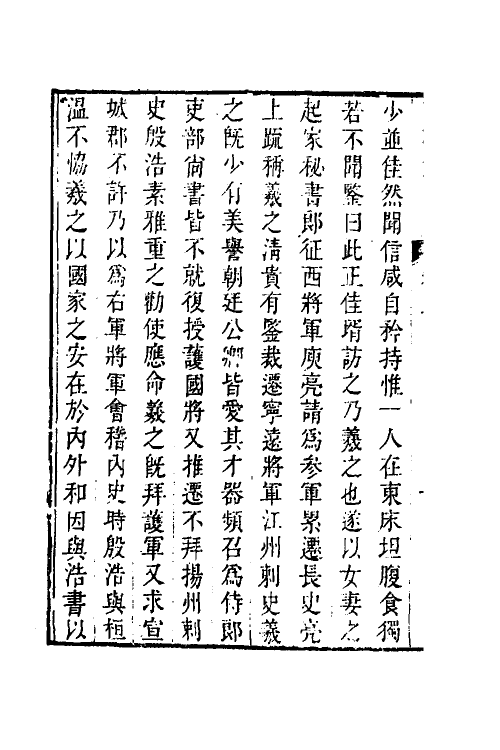 少並佳然聞信咸自矜持惟一人在東床坦腹食獨
若不聞鑒曰此正佳壻訪之乃羲之也遂以女妻之
起家秘書郎征西將軍庾亮請爲參軍累遷長史亮
上疏稱羲之清貴有鑒裁遷寧遠將軍江州刺史羲
之旣少有美譽朝廷公卿皆愛其才器頻召爲侍郎
吏部尚書皆不就復授護國將又推遷不拜揚州刺
史殷浩素雅重之勸使應命羲之旣拜護軍又求宣
城郡不許乃以爲右軍將軍會稽內史時殷浩與桓
溫不恊羲之以國家之安在於內外和因與浩書以